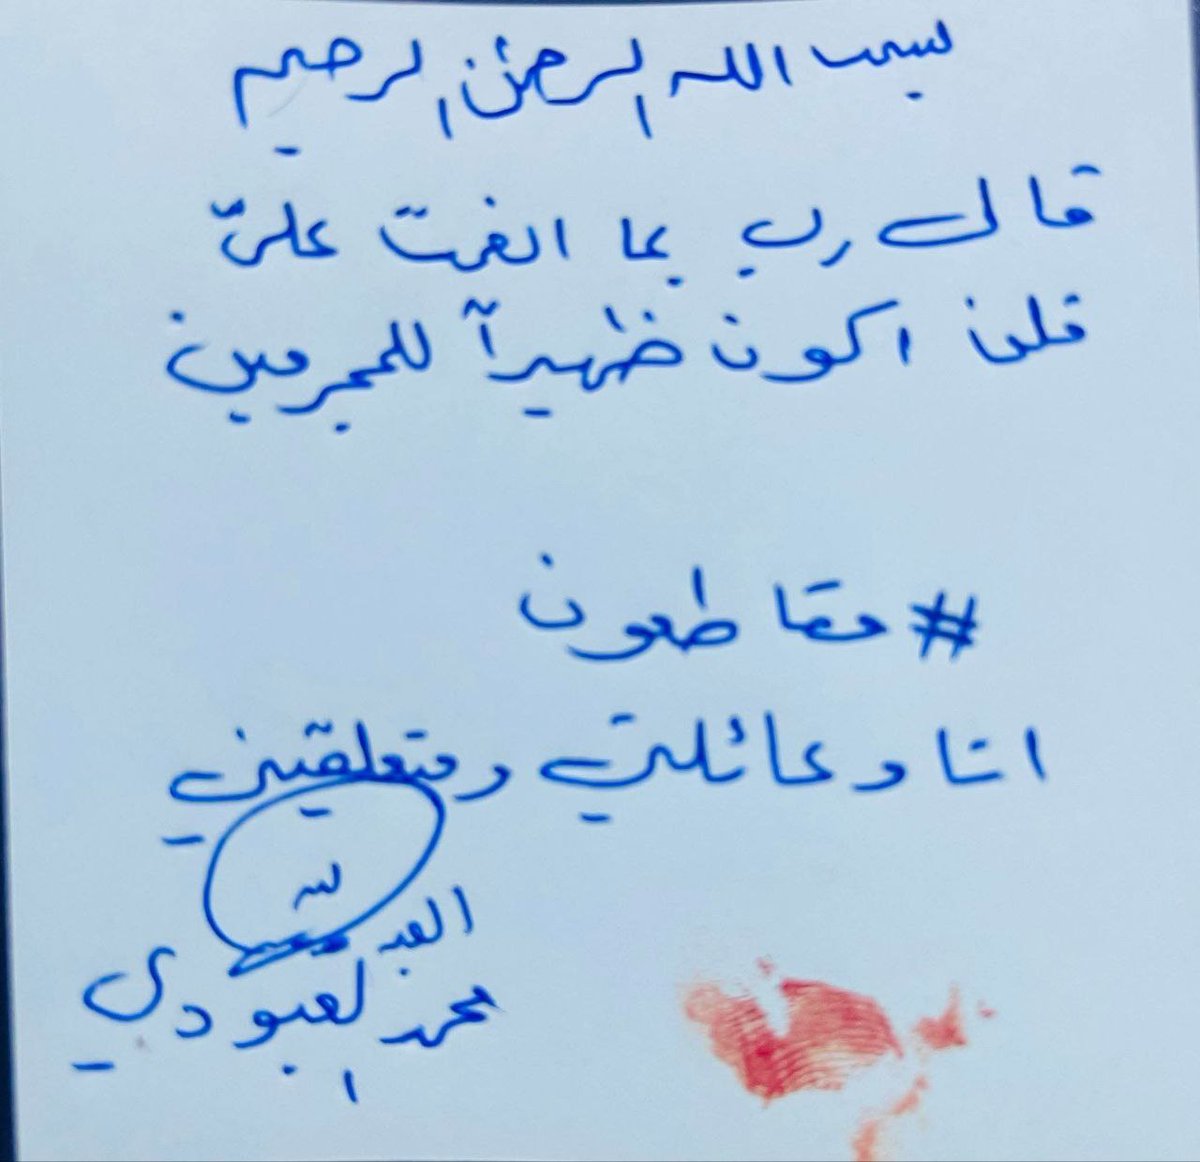 بسم الله الرحمن الرحيم
قال رب بما انعمت عليّ
فلن اكون ظهيرآ للمجرمين
# مقاطعون
انا وعائلتي ومتعلقيني
لله
العبد
محمد العبودي